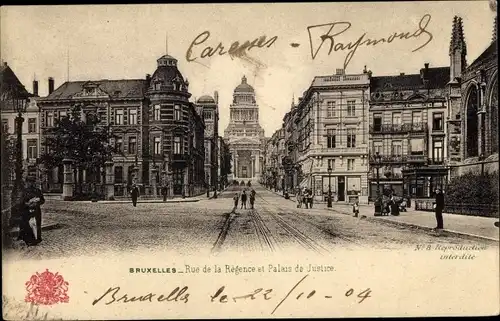 Caresses - Raymond
No 8 Reproduction
interdite
BRUXELLES_ Rue de la Régence et Palais de Justice.
Bruxelles, le 22/10-04